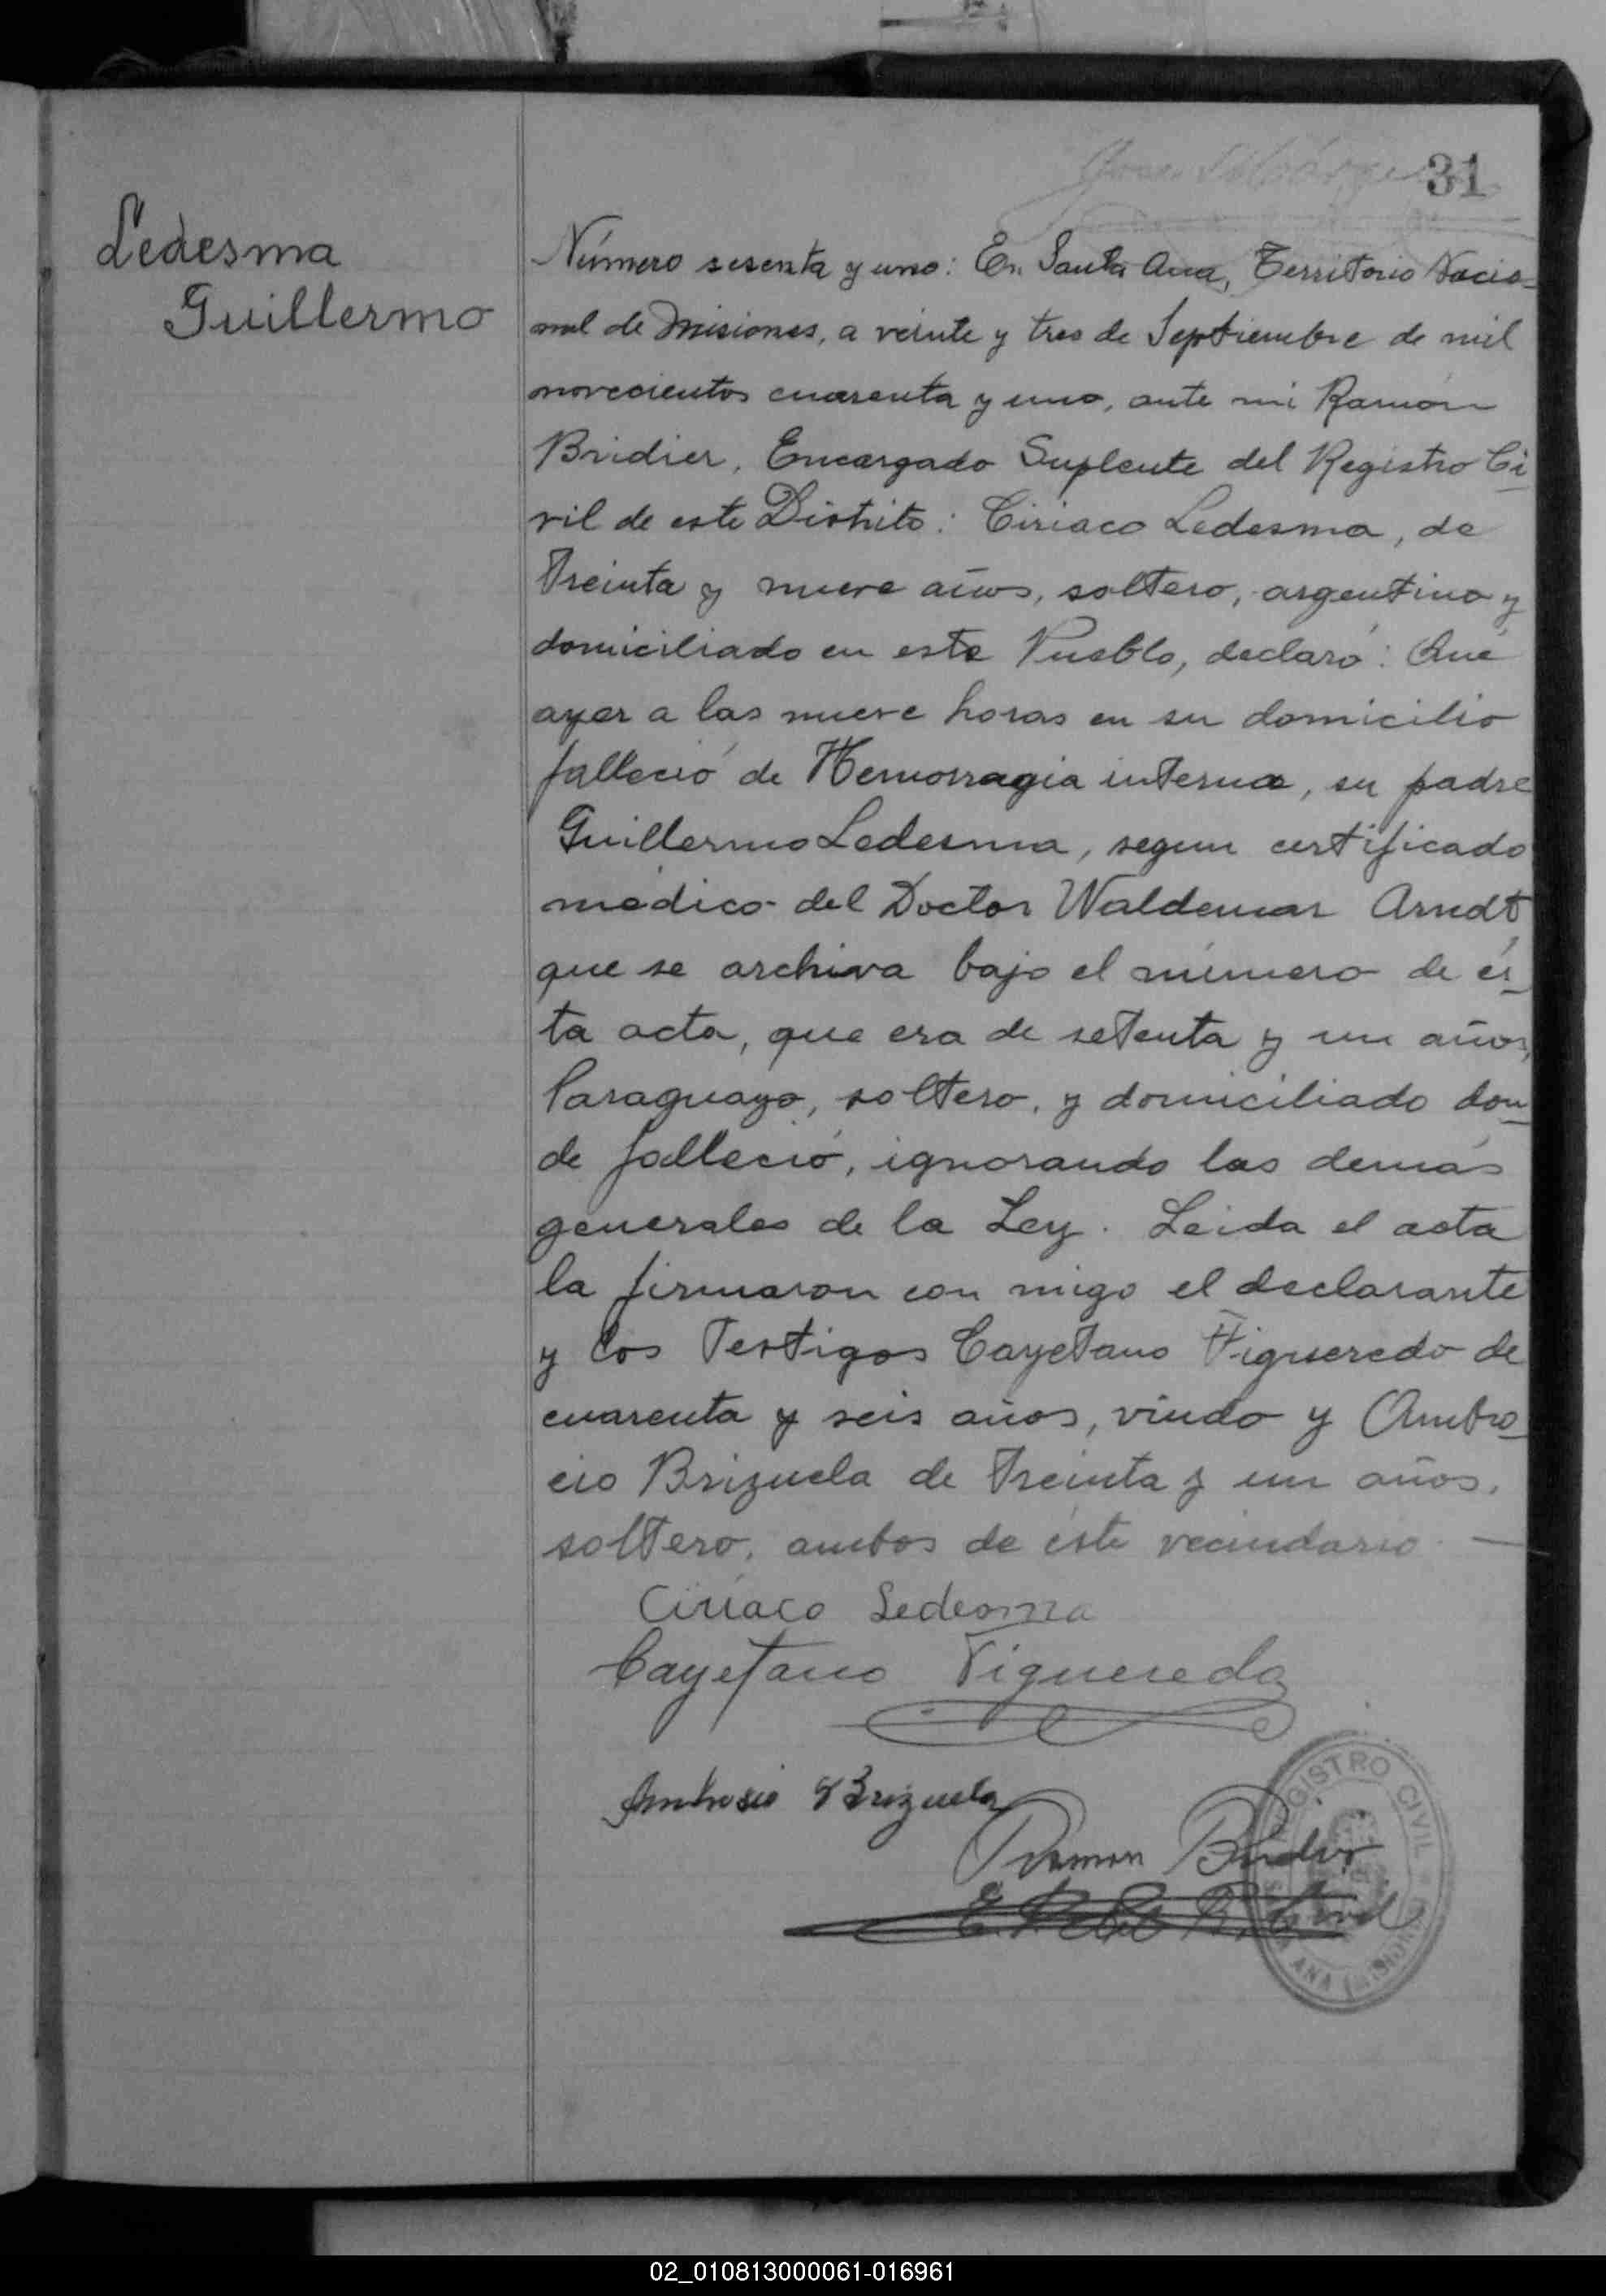 31
Ledesma
Guillermo
Número sesenta y uno: En Santa Ana, Territorio Nacio-
nal de Misiones, a veinte y tres de Septiembre de mil
novecientos cuarenta y uno, ante mi Ramón
Bridier, Encargado Suplente del Registro Ci-
vil de este Distrito: Ciriaco Ledesma, de
Treinta y nueve años, soltero, argentino y
domiciliado en este Pueblo, declaró: Que
ayer a las nueve horas en su domicilio
falleció de Hemorragia interna, su padre
Guillermo Ledesma, segun certificado
médico del Doctor Waldemar Arndt
que se archiva bajo el número de és-
ta acta, que era de setenta y un años,
Paraguayo, soltero, y domiciliado don-
de falleció, ignorando las demás
generales de la Ley. Leida el acta
la firmaron con migo el declarante
y los Testigos Cayetano Figueredo de
cuarenta y seis años, viudo y Ambro-
cio Brizuela de Treinta y un años,
soltero, ambos de éste vecindario. —
Ciriaco Ledesma
Cayetano Figueredo
Ambrosio Brizuela
Ramon Bridier
REGISTRO CIVIL
SANTA ANA (MISIONES)
02_010813000061-016961